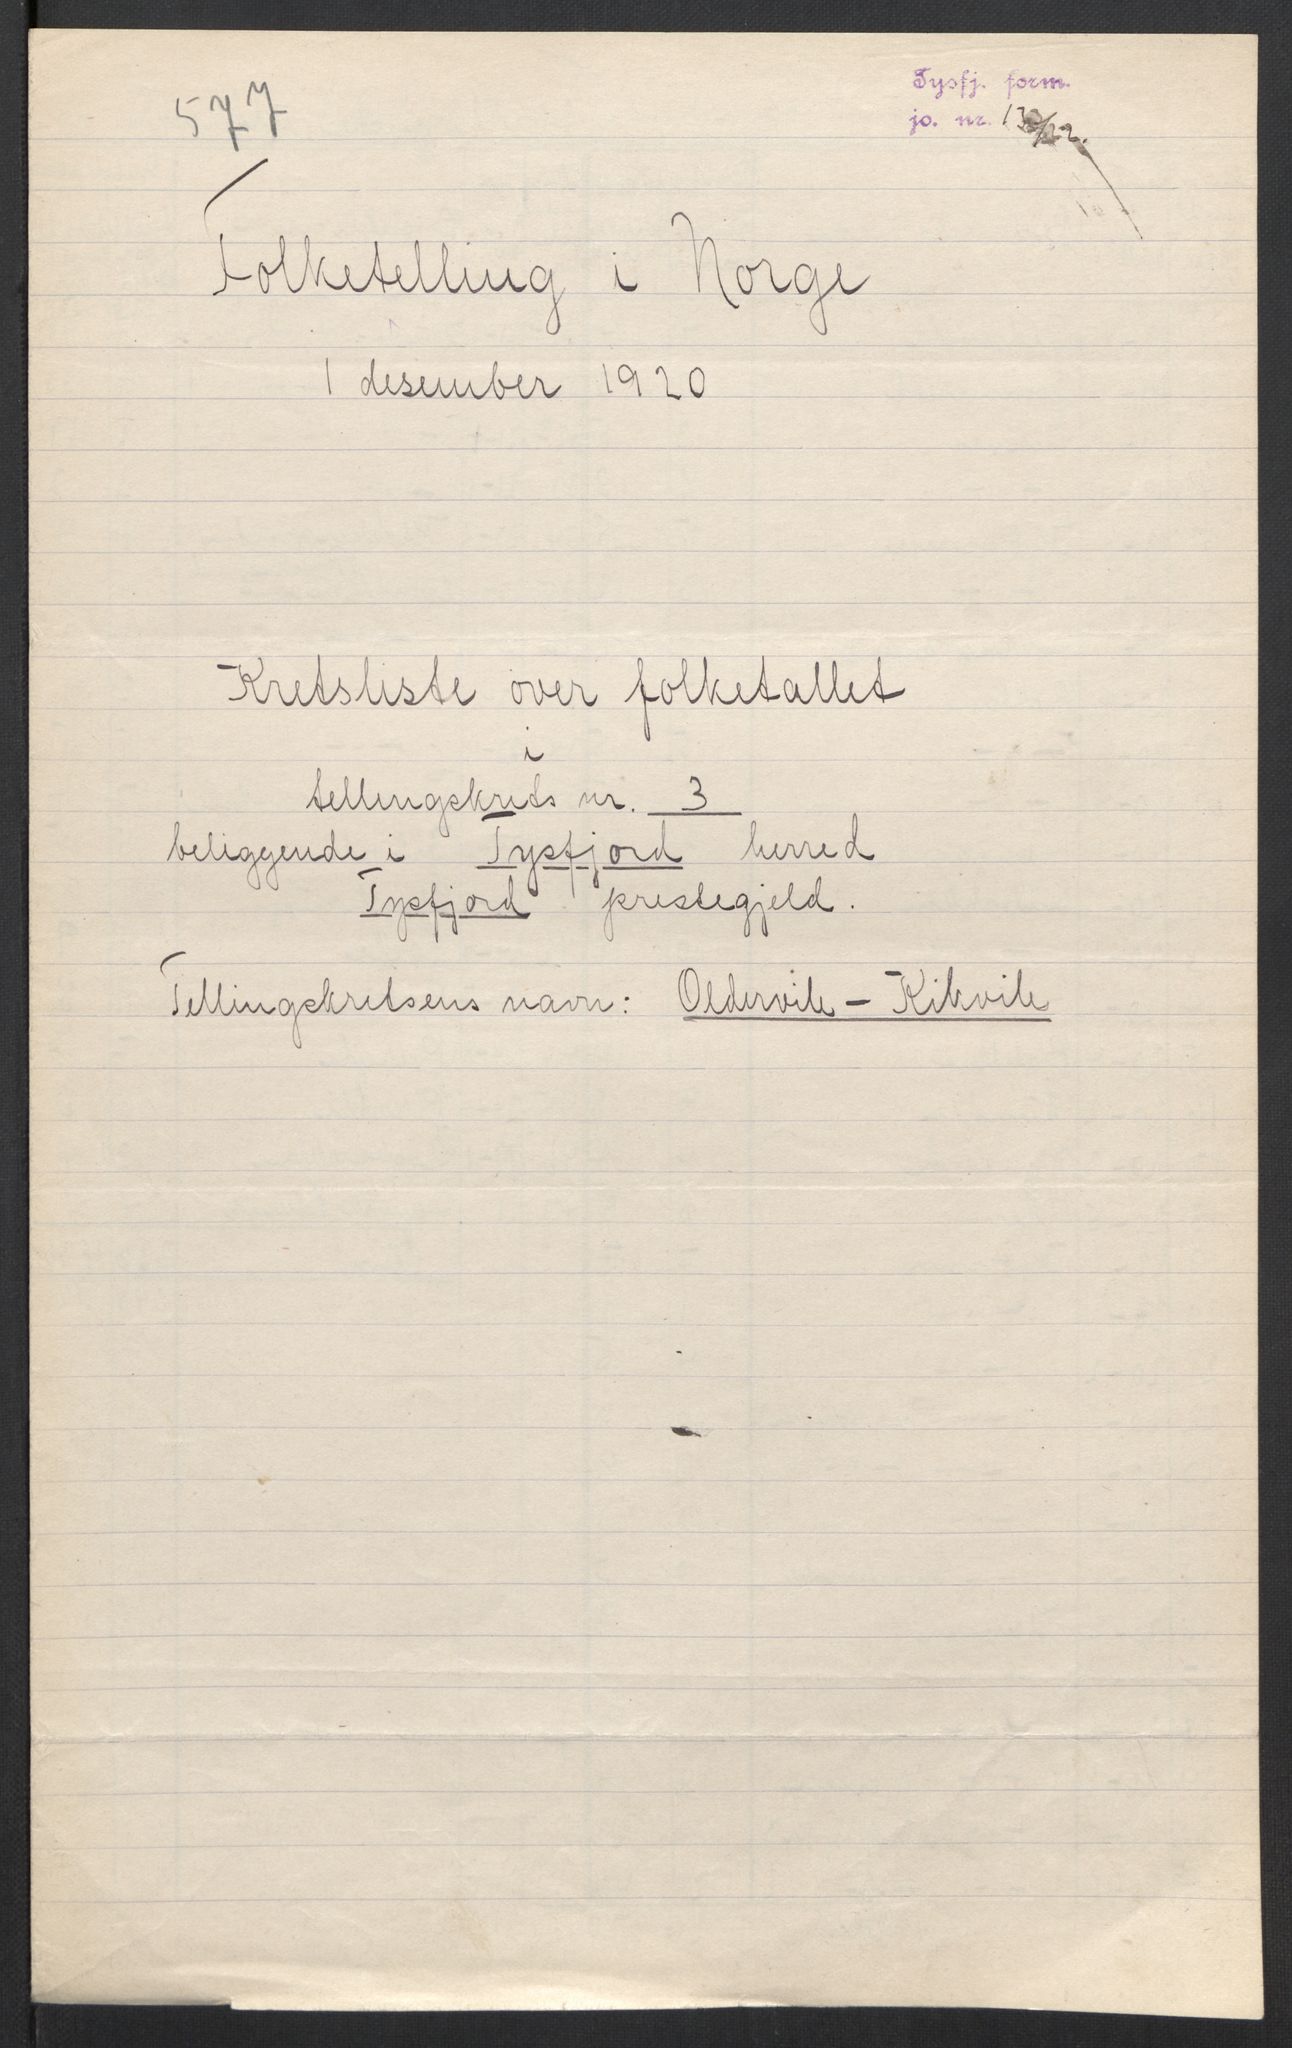 577
Tysfj. form.
jo. nr.
Folketelling i Norge
1 desember 1920
Kretsliste over folketallet
i
tellingskrets nr. 3
beliggende i Tysfjord herred
Tysfjord prestegjeld.
Tellingskretsens navn: Oldervik – Kikvik